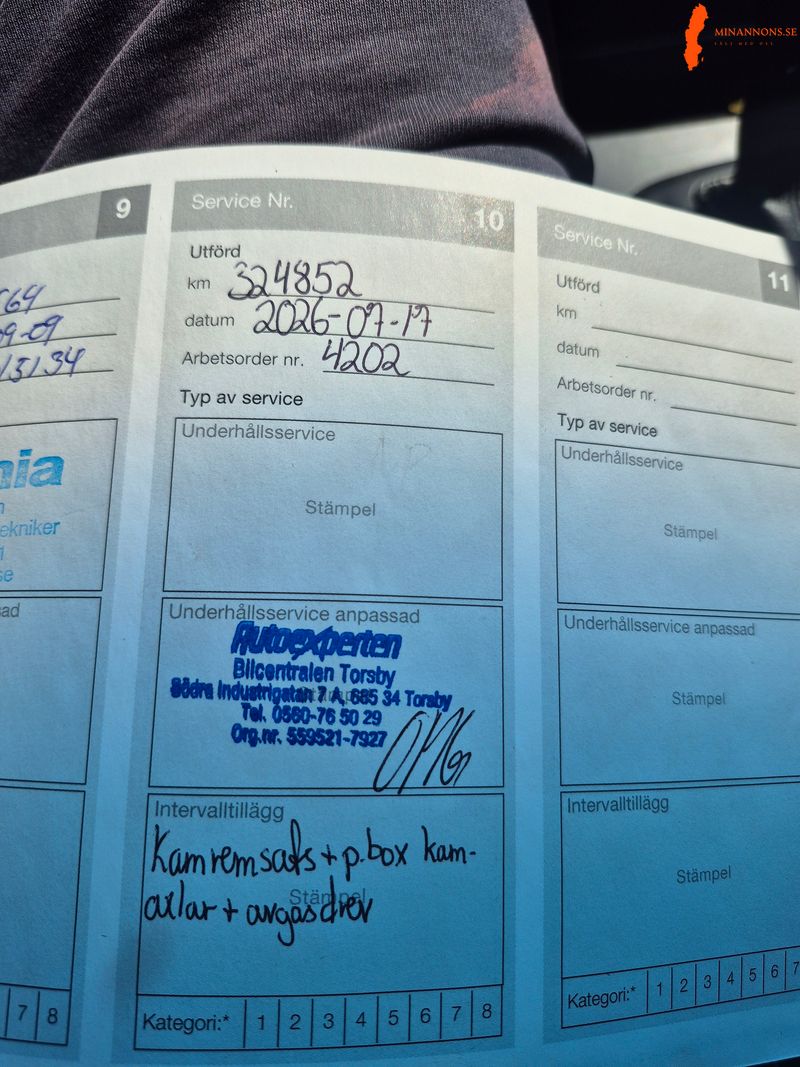 MINANNONS.SE
9
564
09-09
13134
nia
ekniker
se
sad
7 8
Service Nr. 10
Utförd
km 324852
datum 2026-07-17
Arbetsorder nr. 4202
Typ av service
Underhållsservice
Stämpel
Underhållsservice anpassad
Autoexperten
Bilcentralen Torsby
Södra Industrigatan 7 A, 685 34 Torsby
Tel. 0560-76 50 29
Org.nr. 559521-7927
Intervalltillägg
Kamremsats + p.box kam-
axlar + avgasdrev
Stämpel
Kategori:* 1 2 3 4 5 6 7 8
Service Nr. 11
Utförd
km
datum
Arbetsorder nr.
Typ av service
Underhållsservice
Stämpel
Underhållsservice anpassad
Stämpel
Intervalltillägg
Stämpel
Kategori:* 1 2 3 4 5 6 7